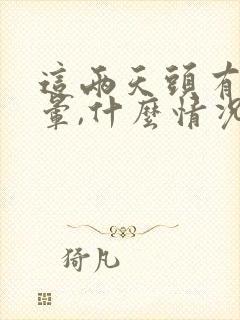 這兩天頭有
暈,什麼情況
猗凡